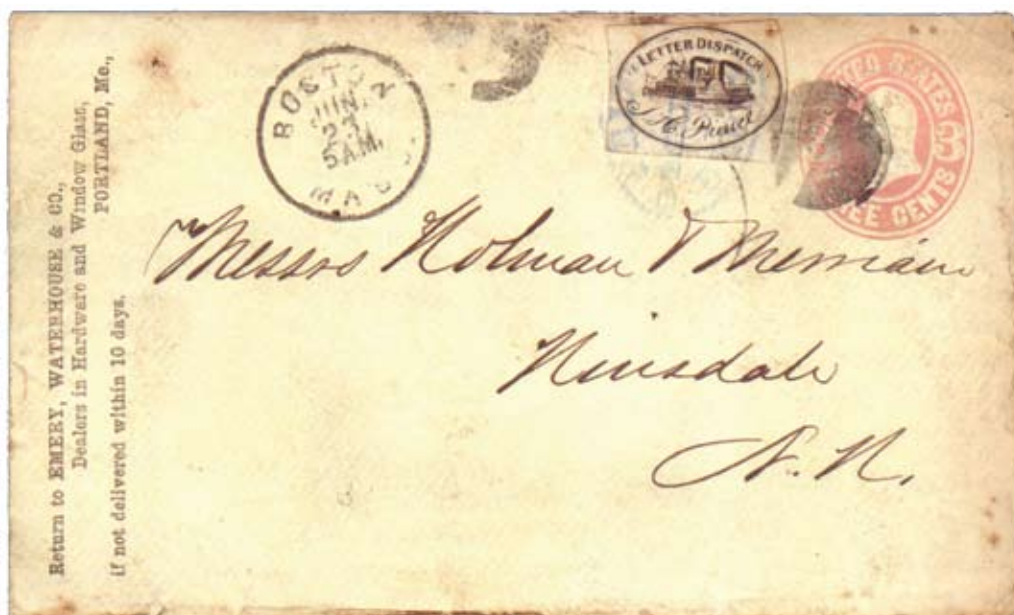 Return to EMERY, WATERHOUSE & CO.,
Dealers in Hardware and Window Glass,
PORTLAND, Me.,
if not delivered within 10 days.
BOSTON
JUN.
23
5 A.M.
MAS
LETTER DISPATCH
J. H. Prince
UNITED STATES
THREE CENTS
Messrs Holman & Merriam
Hinsdale
N. H.